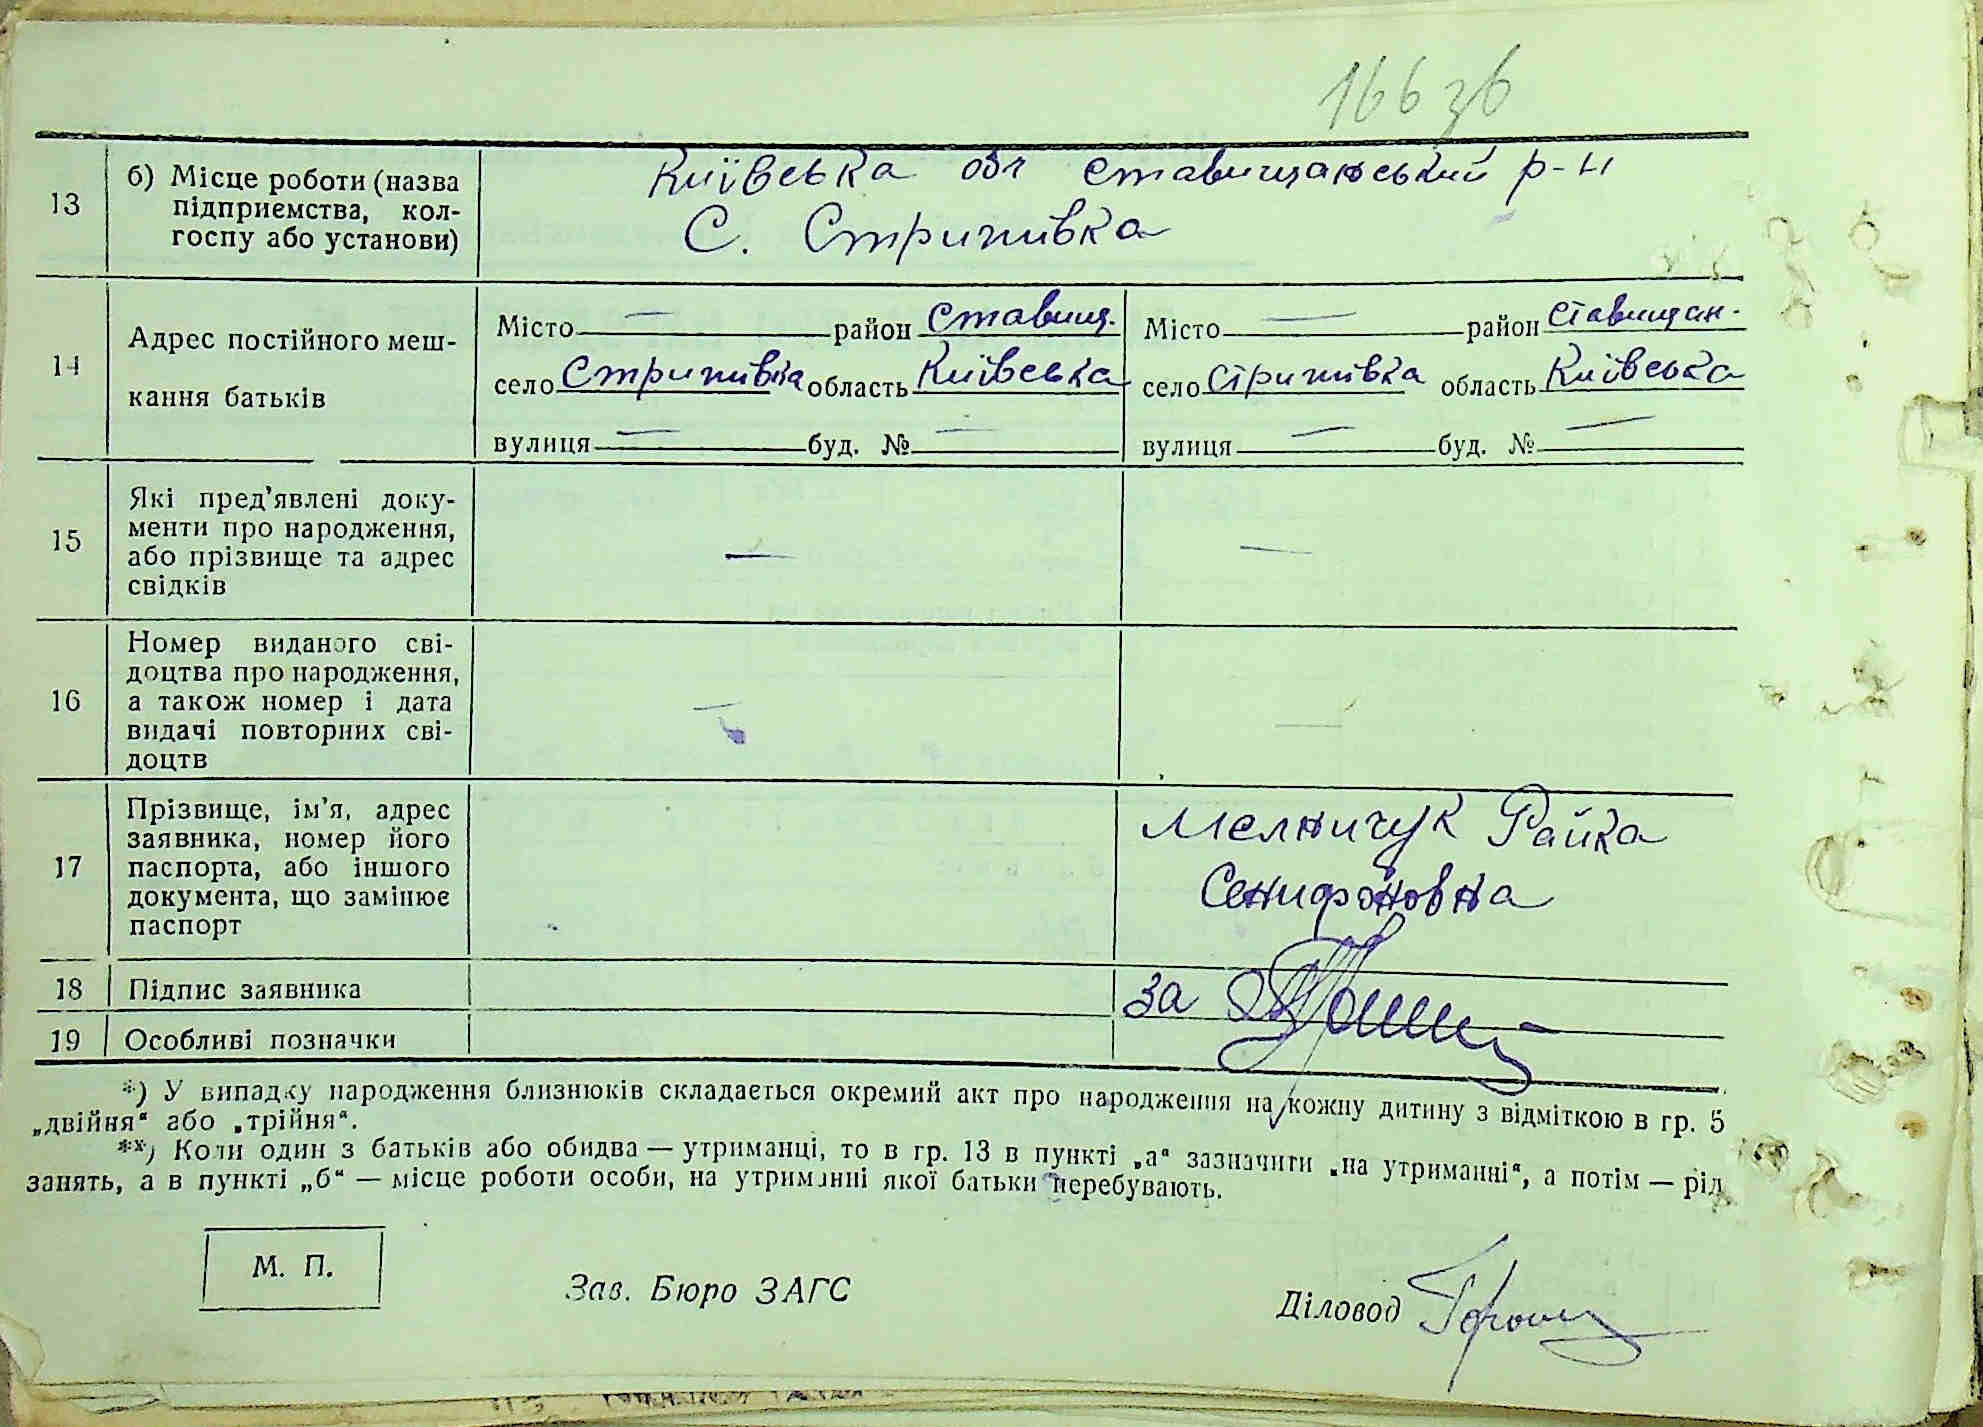 166 зв
13
б) Місце роботи (назва
підприємства, кол-
госпу або установи)
Київська обл Ставищанський р-н
С. Стрижівка
14
Адрес постійного меш-
кання батьків
Місто — район Ставищ.
село Стрижівка область Київська
вулиця — буд. № —
Місто — район Ставищан.
село Стрижівка область Київська
вулиця — буд. № —
15
Які пред'явлені доку-
менти про народження,
або прізвище та адрес
свідків
—
—
16
Номер виданого сві-
доцтва про народження,
а також номер і дата
видачі повторних сві-
доцтв
—
—
17
Прізвище, ім'я, адрес
заявника, номер його
паспорта, або іншого
документа, що замінює
паспорт
Мелничук Райка
Сенифоновна
18
Підпис заявника
за
19
Особливі позначки
*) У випадку народження близнюків складається окремий акт про народження на кожну дитину з відміткою в гр. 5
„двійня“ або „трійня“.
**) Коли один з батьків або обидва — утриманці, то в гр. 13 в пункті „а“ зазначити „на утриманні“, а потім — рід
занять, а в пункті „б“ — місце роботи особи, на утриманні якої батьки перебувають.
М. П.
Зав. Бюро ЗАГС
Діловод